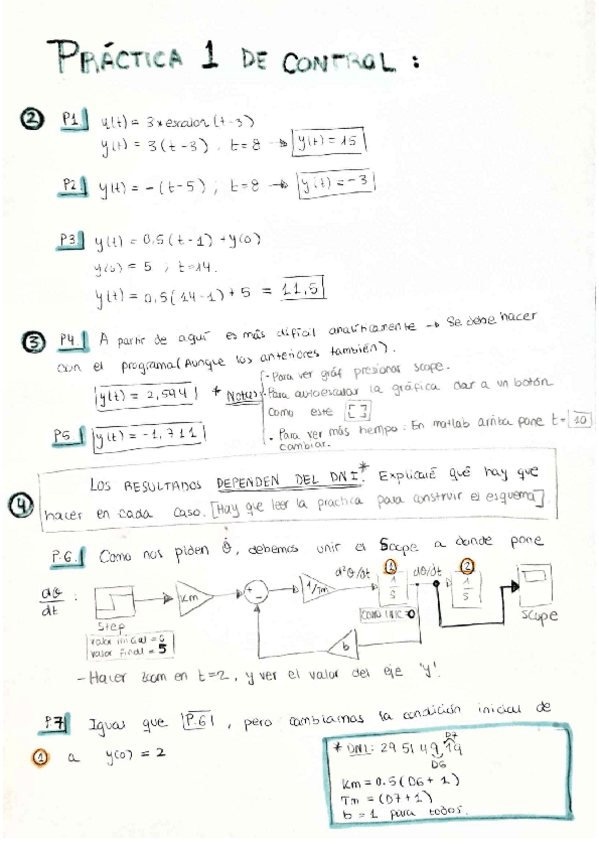 PRÁCTICA 1 DE CONTROL :
② P1. y(t) = 3*escalon(t-3)
y(t) = 3(t-3) . t=8 → y(t) = 15
P2 y(t) = -(t-5) ; t=8 → y(t) = -3
P3. y(t) = 0,5(t-1) + y(0)
y(0) = 5 ; t=14.
y(t) = 0,5(14-1) + 5 = 11,5
③ P4. A partir de aquí es más difícil analíticamente → Se debe hacer
con el programa (Aunque los anteriores también).
y(t) = 2,594 * Notas:
- Para ver gráf presionas scope.
- Para autoescalar la gráfica dar a un botón
como este [ ]
- Para ver más tiempo: En matlab arriba pone t= 10
cambiar.
P5 y(t) = -1,711
④ LOS RESULTADOS DEPENDEN DEL DNI*. Explicaré qué hay que
hacer en cada caso. [Hay que leer la practica para construir el esquema]
P.6. Como nos piden θ̇, debemos unir el Scope a donde pone
dθ/dt :
Step
valor inicial = 0
valor final = 5
Km
+
-
1/Tm
d²θ/dt
① 1/s
COND INIC = 0
dθ/dt
② 1/s
Scope
b
- Hacer zoom en t=2, y ver el valor del eje 'y'.
P7 Igual que P.6, pero cambiamos la condición inicial de
① a y(0) = 2
D7
* DNI: 29514919
D6
Km = 0.5(D6 + 1)
Tm = (D7 + 1)
b = 1 para todos.